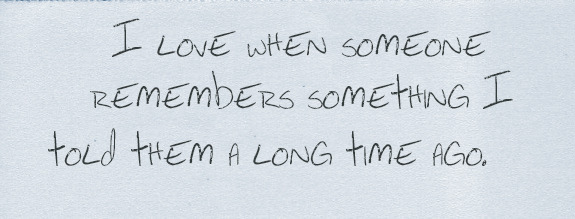 I LOVE WHEN SOMEONE
REMEMbERS SOMETHING I
tOLd tHEM A LONG tIME AGO.